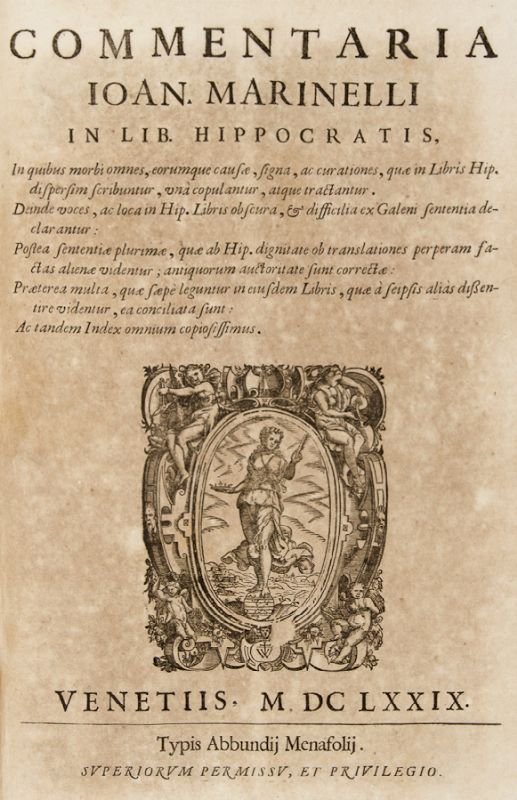 COMMENTARIA
IOAN. MARINELLI
IN LIB. HIPPOCRATIS,
In quibus morbi omnes, eorumque causæ, signa, ac curationes, quæ in Libris Hip.
dispersim scribuntur, vnà copulantur, atque tractantur.
Deinde voces, ac loca in Hip. Libris obscura, & difficilia ex Galeni sententia de-
clarantur:
Postea sententiæ plurimæ, quæ ab Hip. dignitate ob translationes perperam fa-
ctas alienæ videntur; antiquorum auctoritate sunt correctæ:
Præterea multa, quæ sæpe leguntur in eiusdem Libris, quæ à seipsis aliàs dißen-
tire videntur, ea conciliata sunt:
Ac tandem Index omnium copiosissimus.
VENETIIS, M. DC LXXIX.
Typis Abbundij Menafolij.
SVPERIORVM PERMISSV, ET PRIVILEGIO.